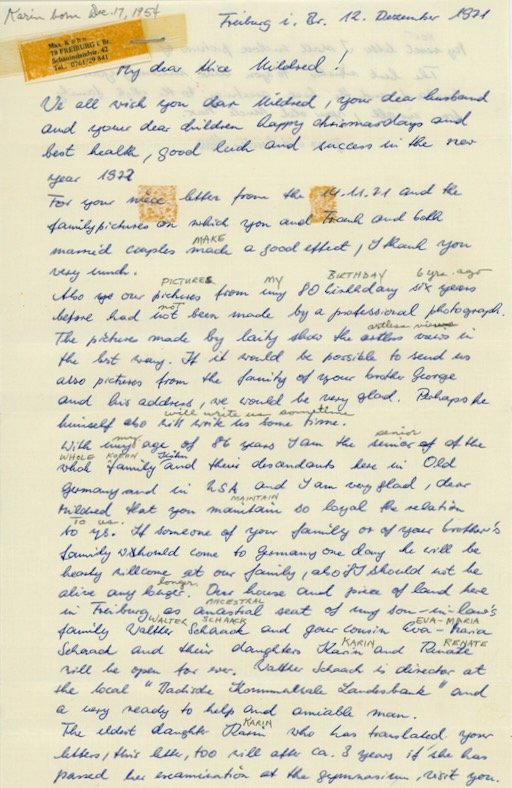 Karin born Dec. 17, 1954
Freiburg i. Br. 12. Dezember 1971
Max Kohn
78 FREIBURG i. Br.
Schauinslandstr. 42
Tel. 0761/29 841
My dear Niece Mildred!
We all wish you dear Mildred, your dear husband
and your dear children happy christmasdays and
best health, good luck and success in the new
year 1972
For your niece letter from the 14.11.71 and the
familypictures on which you and Frank and both
MAKE
married couples made a good effect, I thank you
very much.
PICTURES MY BIRTHDAY 6 yrs. ago
Also our pictures from my 80 birthday six years
not
before had not been made by a professional photograph.
artless views
The pictures made by laity show the artless views in
the best way. If it would be possible to send us
also pictures from the family of your brother George
and his address, we would be very glad. Perhaps he
will write us something
himself also will write us some time.
my senior
With my age of 86 years I am the senior of of the
WHOLE KOHN
whole family and their descendants here in Old
Germany and in USA and I am very glad, dear
MAINTAIN
Mildred that you maintain so loyal the relation
TO us.
to us. If someone of your family or of your brother's
family should come to Germany one day he will be
hearty wellcome at our family, also if I should not be
longer.
alive any longer. Our house and piece of land here
ANCESTRAL
in Freiburg, as ancestral seat of my son-in-law's
WALTER SCHAACK EVA-MARIA
family Walther Schaack and your cousin Eva-Maria
KARIN RENATE
Schaack and their daughters Karin and Renate
will be open for ever. Walther Schaack is director at
the local "Badische Kommunale Landesbank" and
a very ready to help and amiable man.
KARIN
The eldest daughter Karin who has translated your
letters, this letter, too will after ca. 3 years if she has
passed her examination at the gymnasium, visit you.